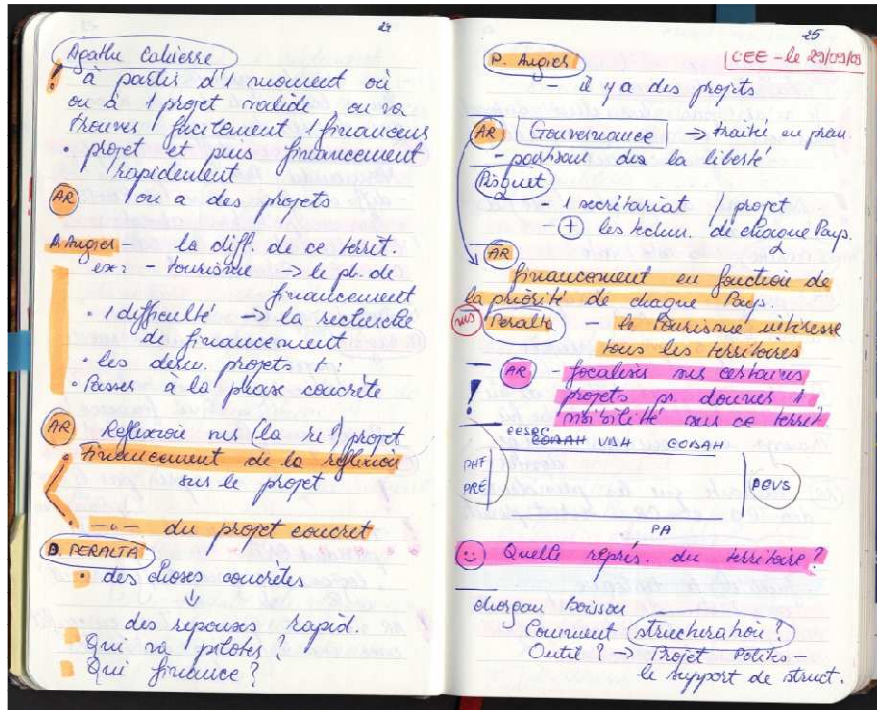 24
Agathe
! à partir d'1 moment où
on a 1 projet valide on va
trouver facilement 1 financeur
• projet et puis financement
rapidement
AR ! on a des projets
P. Angier - la diff. de ce territ.
ex: - tourisme → le pl. de
financement
• 1 difficulté → la recherche
de financement
• les projets +:
• Passer à la phase concrète
AR Reflexion sur (la re) projet
• financement de la reflexion
sur le projet
• -"- du projet concret
D. PERALTA
• des choses concrètes
↓
des reponses rapid.
- Qui va piloter?
- Qui finance?
25
CEE - le 29/09/09
P. Angier
- il y a des projets
AR Gouvernance → traité en
- partisan de la liberté
Pisquet
- 1 secrétariat / projet
- + les techn. de chaque Pays.
AR
financement en fonction de
la priorité de chaque Pays.
Peralta - le Tourisme intéresse
tous les territoires
AR - focaliser sur certains
! projets pr. donner 1
visibilité sur ce territ
COBAH
PHF
PRE
POVS
PA
Quelle représ. du territoire?
Morgan Boisson
Comment structuration?
Outil? → Projet Politis -
le support de struct.